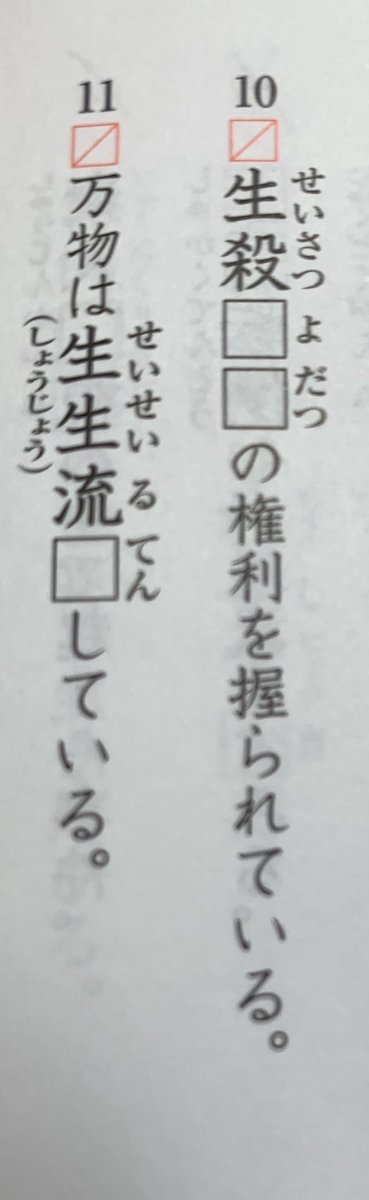 10
生殺□□の権利を握られている。
せいさつよだつ
11
万物は生生流□している。
せいせいるてん
(しょうじょう)